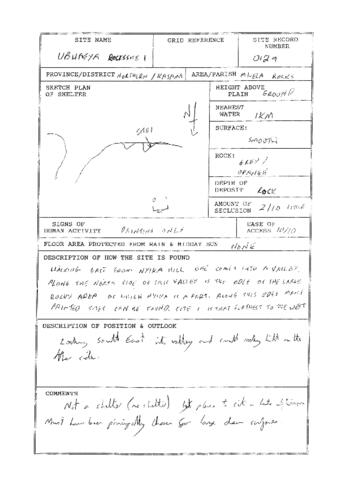 SITE NAME
GRID REFERENCE
SITE RECORD NUMBER
0129
PROVINCE/DISTRICT NORTHERN / KASAMA
AREA/PARISH ROCKS
SKETCH PLAN OF SHELTER
N
HEIGHT ABOVE PLAIN GROUND
NEAREST WATER 1KM
SURFACE: SMOOTH
ROCK: GREY / ORANGE
DEPTH OF DEPOSIT ROCK
AMOUNT OF SECLUSION 2/10
SIGNS OF HUMAN ACTIVITY PAINTING ONLY
EASE OF ACCESS 10/10
FLOOR AREA PROTECTED FROM RAIN & MIDDAY SUN NONE
DESCRIPTION OF HOW THE SITE IS FOUND
WALKING EAST FROM NYIRA HILL ONE COMES INTO A VALLEY.
ALONG THE NORTH SIDE OF THIS VALLEY IS THE EDGE OF THE LARGE
ROCKY AREA OF WHICH NYIRA IS A PART. ALONG THIS EDGE MANY
PAINTED SITES CAN BE FOUND. SITE 1 IS THAT CLOSEST TO THE WEST
DESCRIPTION OF POSITION & OUTLOOK
Looking South East into valley and small rocky hill on the
other side.
COMMENTS
Not a shelter (no shelter)
Must have been principally chosen for large clean surfaces